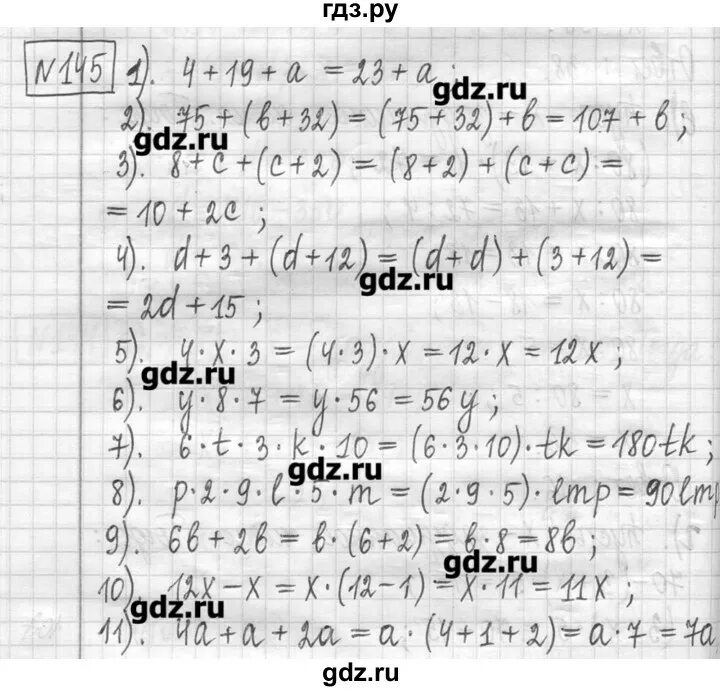 гдз.ру
№145 1). 4+19+a = 23+a;
gdz.ru
2). 75+(в+32) = (75+32)+в = 107+в;
gdz.ru
3). 8+c+(c+2) = (8+2)+(c+c) =
= 10+2c;
4). d+3+(d+12) = (d+d)+(3+12) =
gdz.ru
= 2d+15;
5). 4·x·3 = (4·3)·x = 12·x = 12x;
gdz.ru
6). y·8·7 = y·56 = 56y;
7). 6·t·3·k·10 = (6·3·10)·tk = 180tk;
gdz.ru
8). p·2·9·l·5·m = (2·9·5)·lmp = 90lmp
9). 6в+2в = в·(6+2) = в·8 = 8в;
gdz.ru
10). 12x-x = x·(12-1) = x·11 = 11x;
gdz.ru
11). 4a+a+2a = a·(4+1+2) = a·7 = 7a
gdz.ru